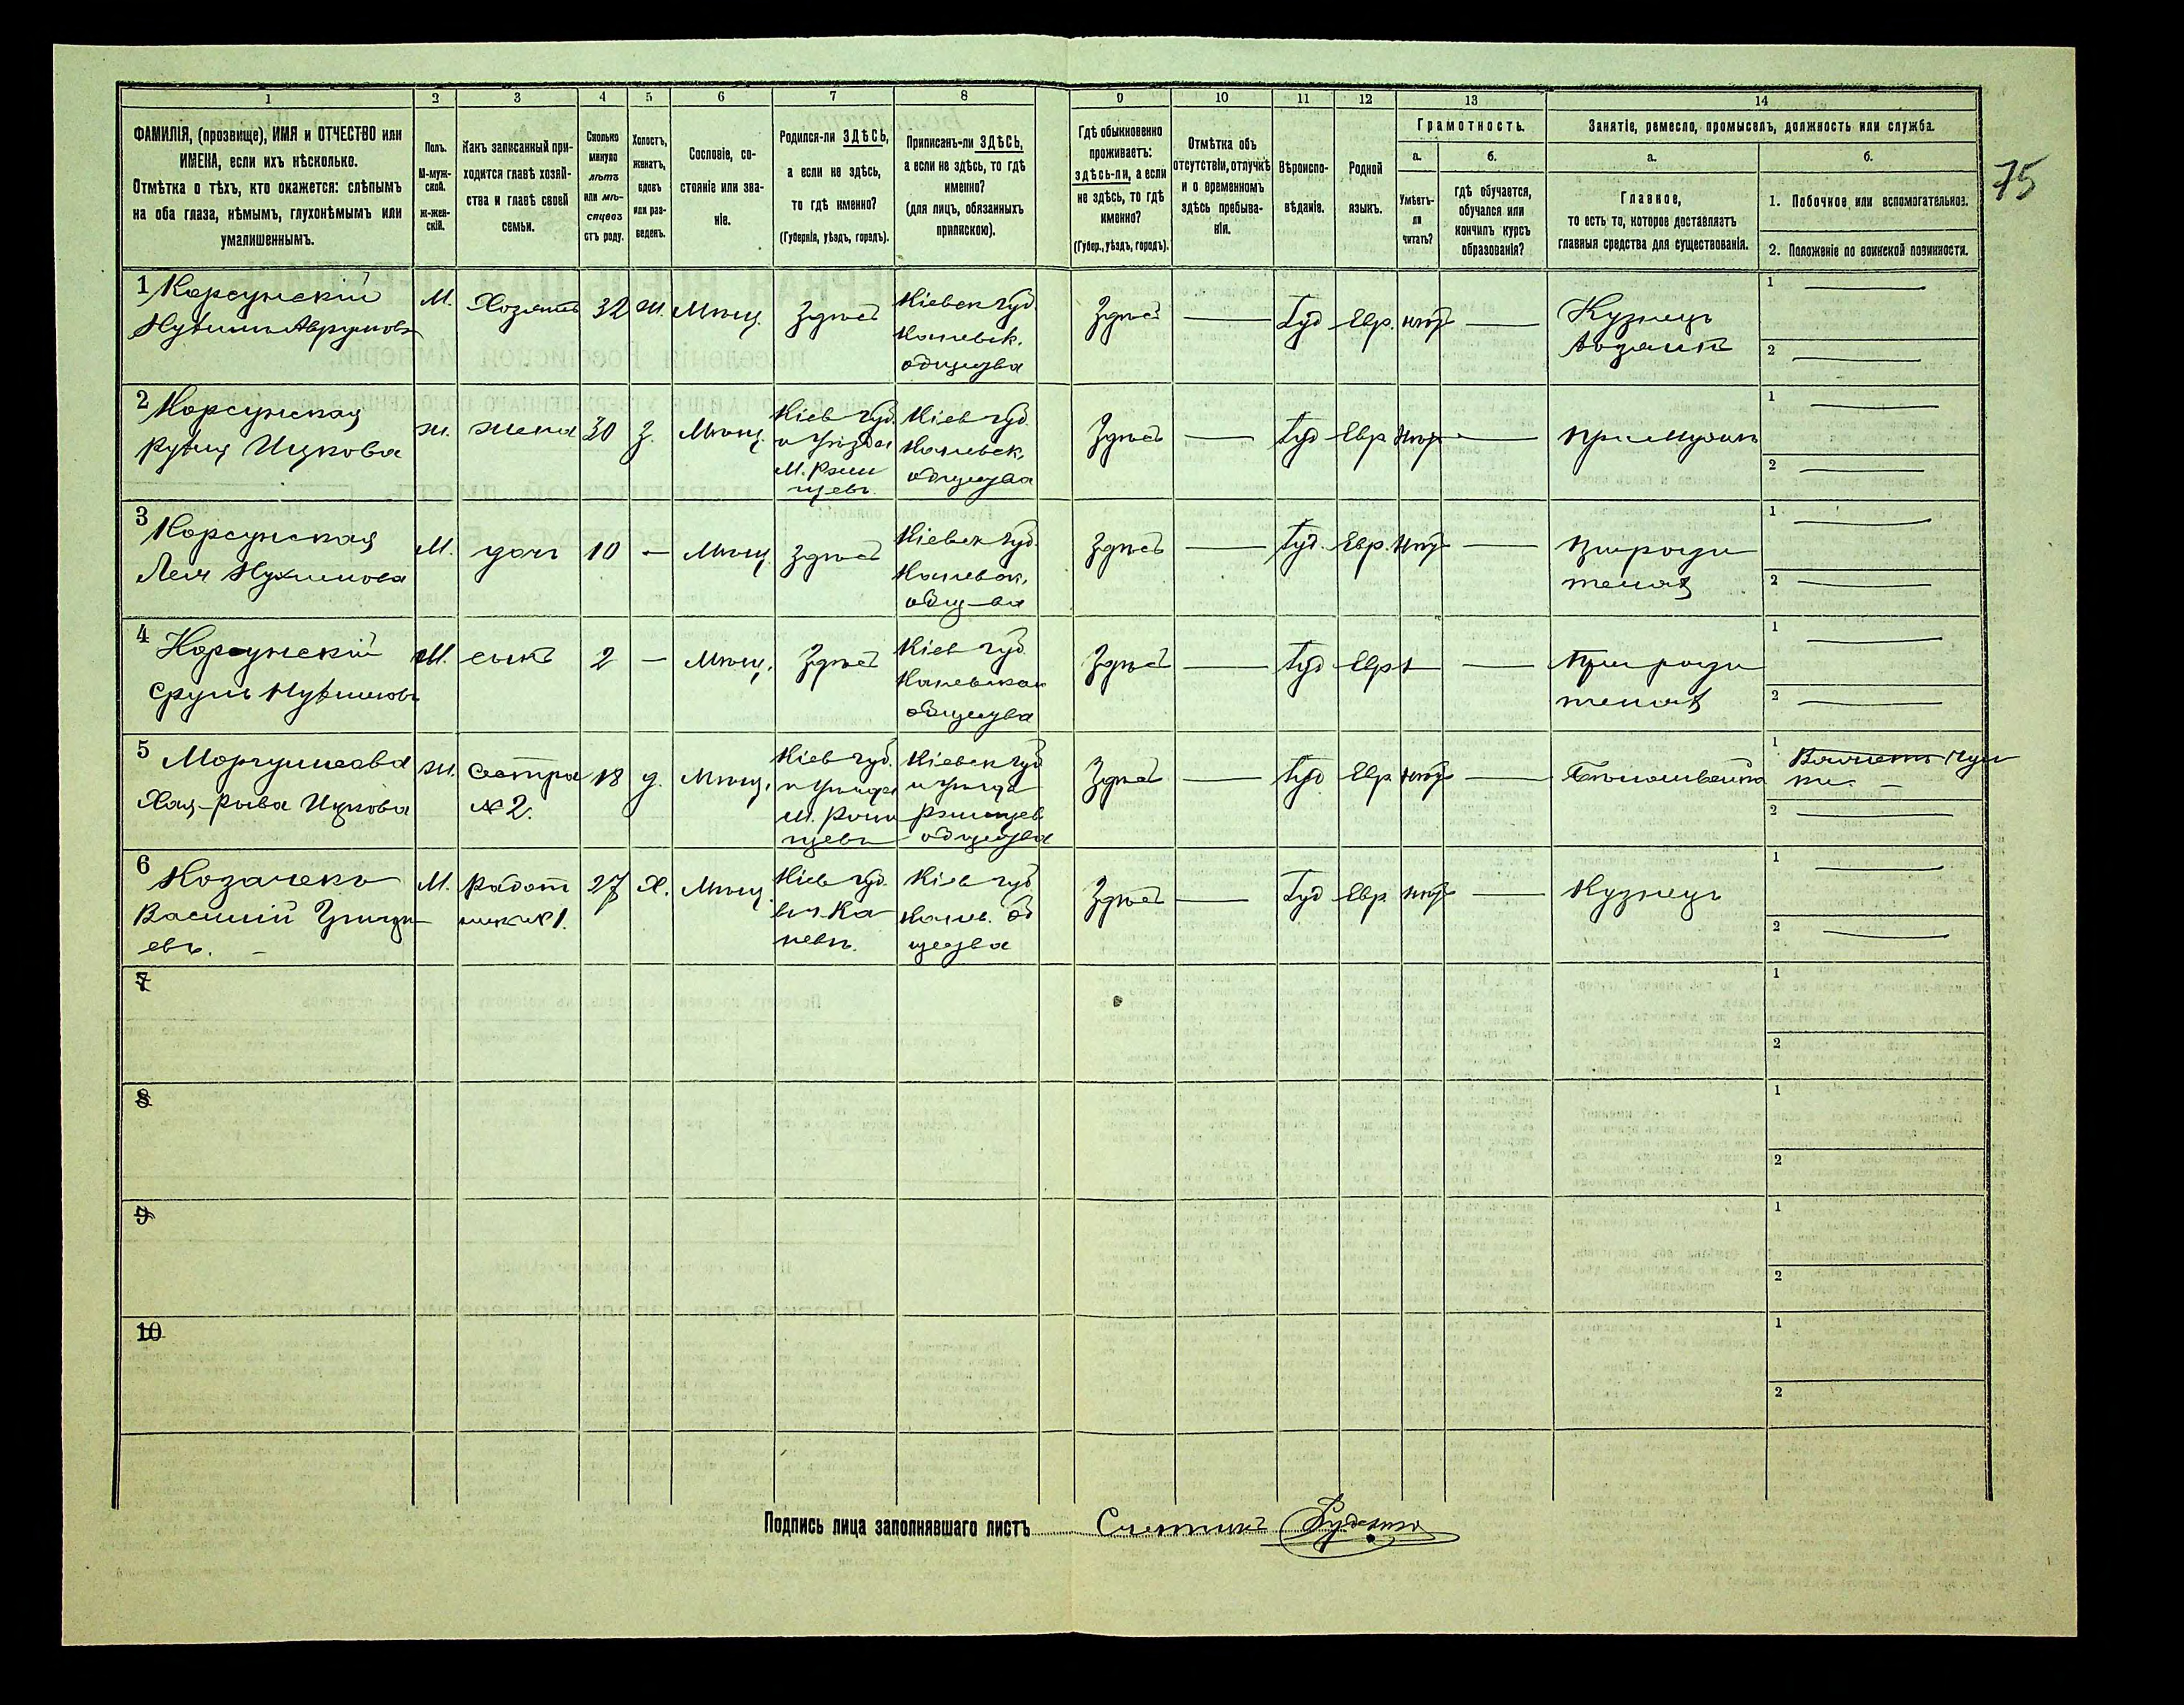 75
1 2 3 4 5 6 7 8 9 10 11 12 13 14
ФАМИЛІЯ, (прозвище), ИМЯ и ОТЧЕСТВО или
ИМЕНА, если ихъ нѣсколько.
Отмѣтка о тѣхъ, кто окажется: слѣпымъ
на оба глаза, нѣмымъ, глухонѣмымъ или
умалишеннымъ.
Полъ.
М-муж-
ской.
Ж-жен-
скій.
Какъ записанный при-
ходится главѣ хозяй-
ства и главѣ своей
семьи.
Сколько
минуло
лѣтъ
или мѣ-
сяцевъ
отъ роду.
Холостъ,
женатъ,
вдовъ
или раз-
веденъ.
Сословіе, со-
стояніе или зва-
ніе.
Родился-ли ЗДѢСЬ,
а если не здѣсь,
то гдѣ именно?
(Губернія, уѣздъ, городъ).
Приписанъ-ли ЗДѢСЬ,
а если не здѣсь, то гдѣ
именно?
(для лицъ, обязанныхъ
припискою).
Гдѣ обыкновенно
проживаетъ:
здѣсь-ли, а если
не здѣсь, то гдѣ
именно?
(Губер., уѣздъ, городъ).
Отмѣтка объ
отсутствіи, отлучкѣ
и о временномъ
здѣсь пребыва-
ніи.
Вѣроиспо-
вѣданіе.
Родной
языкъ.
Грамотность.
а.
Умѣетъ-
ли
читать?
б.
гдѣ обучается,
обучался или
кончилъ курсъ
образованія?
Занятіе, ремесло, промыселъ, должность или служба.
а.
Главное,
то есть то, которое доставляетъ
главныя средства для существованія.
б.
1. Побочное или вспомогательное.
2. Положеніе по воинской повинности.
1 Корсунскій
М. Хозяинъ 32 ж. Мѣщ. Здѣсь
Кіевск губ
Каневск.
общества
Здѣсь Іуд Евр. нѣт
Кузнец
хозяинъ
1
2
2 Корсунская
Ицкова
ж. жена 30 з. Мѣщ.
Кіев губ.
и уѣзда
м. Ржи
щевъ.
Кіев губ.
Каневск.
общества
Здѣсь Іуд Евр нѣт при мужѣ
1
2
3 Корсунская
Лея Нухимова
М. дочь 10 — Мѣщ. Здѣсь
Кіевск губ.
Каневск.
общ-ва
Здѣсь Іуд. Евр. нѣт
при роди
теляхъ
1
2
4 Корсунскій
Сруль
М. сынъ 2 — Мѣщ. Здѣсь
Кіев губ
Каневскаго
общества
Здѣсь Іуд Евр
при роди
теляхъ
1
2
5
Ицкова
ж. Сестра
№ 2.
18 д. Мѣщ.
Кіев губ.
и уѣзда
м. Ржи
щевъ
Кіевск губ
и уѣзда
Ржищев
общества
Здѣсь Іуд Евр нѣт
1
2
6 Козаченко
Василій
евъ. —
М. Работ
никъ № 1.
27 х. Мѣщ.
Кіев губ.
въ г. Ка
невѣ.
Кіев губ
Канев. об
щества
Здѣсь Іуд Евр нѣт
Кузнецъ
1
2
7
1
2
8
1
2
9
1
2
10
1
2
Подпись лица заполнявшаго листъ Счетчикъ